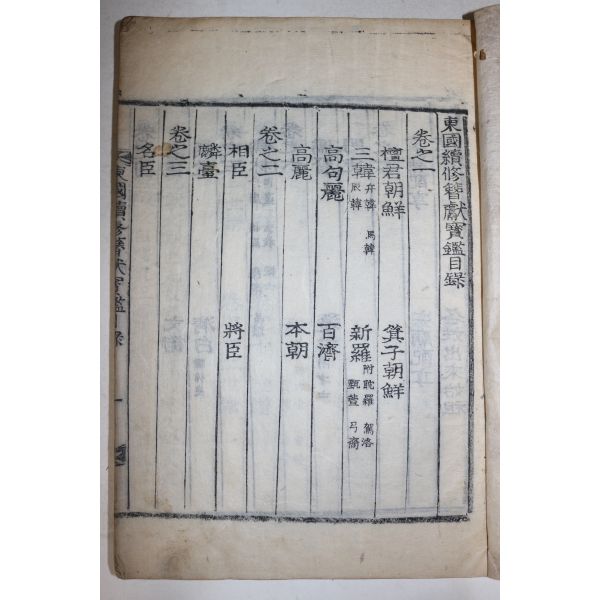 東國續修簪獻寶鑑目録
卷之一
檀君朝鮮 箕子朝鮮
三韓 弁韓 馬韓 辰韓 新羅 附耽羅 駕洛 甄萱 弓裔
高句麗 百濟
高麗 本朝
卷之二
相臣 將臣
麟臺
卷之三
名臣
東國續修簪獻寶鑑目録 一